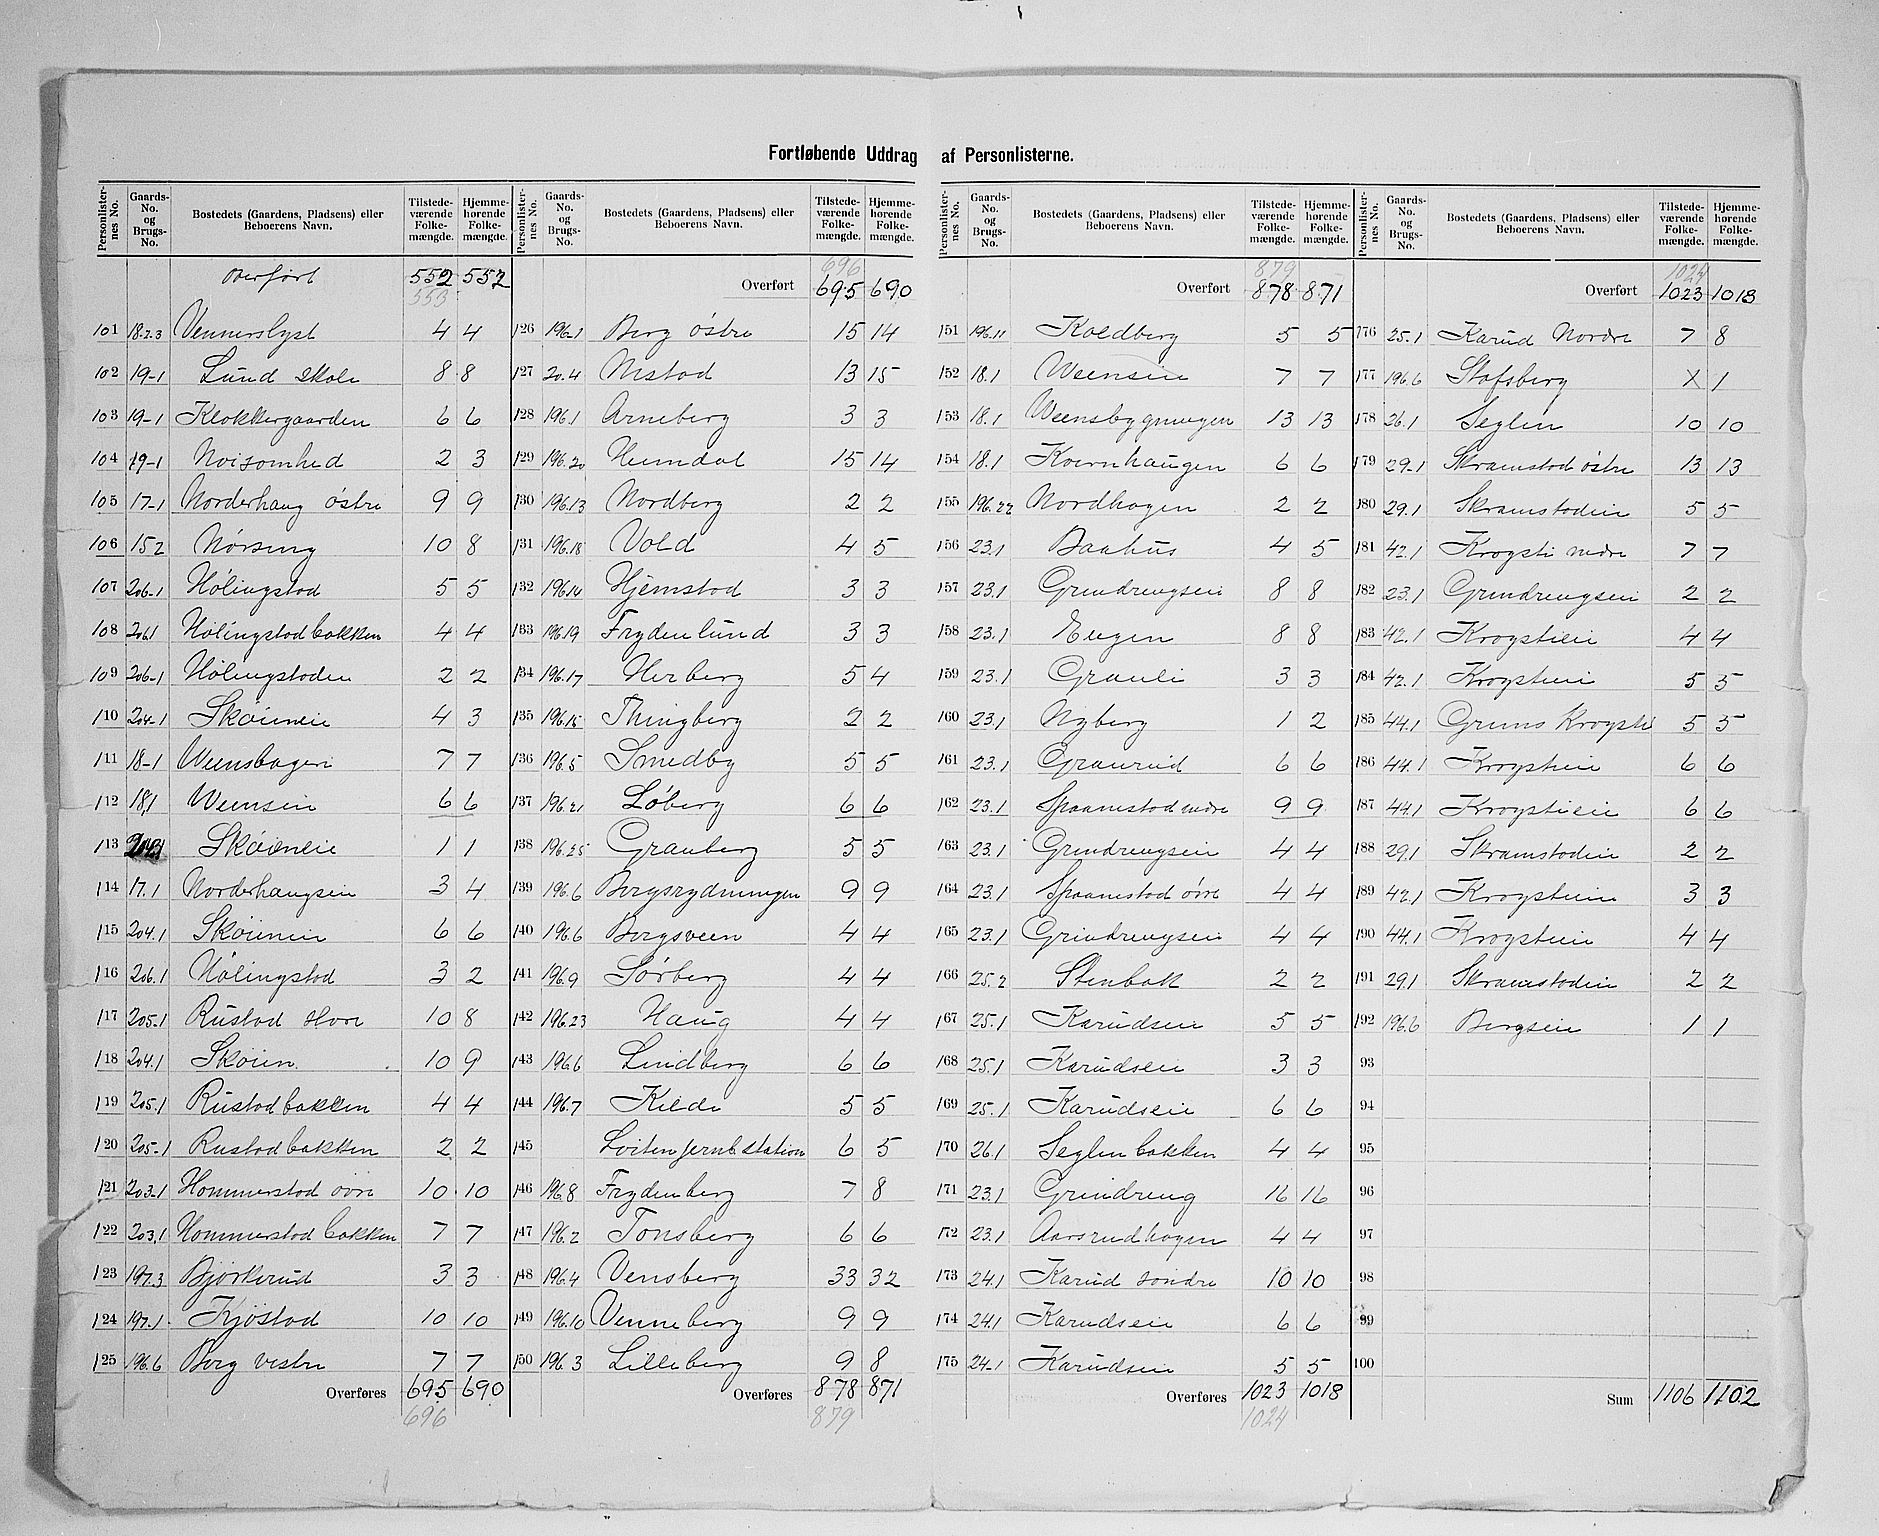 Fortløbende Uddrag af Personlisterne.
Personlister-nes No. | Gaards-No. og Brugs-No. | Bostedets (Gaardens, Pladsens) eller Beboerens Navn. | Tilstede-værende Folke-mængde. | Hjemme-hørende Folke-mængde.
Overført 552 552
553
101 18.2.3 Vennerslyst 4 4
102 19-1 Lund skole 8 8
103 19-1 Klokkergaarden 6 6
104 19-1 Noisomhed 2 3
105 17-1 Norderhaug østre 9 9
106 15.2 Nørseng 10 8
107 206-1 Hølingstad 5 5
108 206.1 Hølingstadbakken 4 4
109 206-1 Hølingstadeie 2 2
110 204-1 Skøieneie 4 3
111 18-1 Weenshagen 7 7
112 18.1 Weenseie 6 6
113 204.1 Skøieneie 1 1
114 17.1 Norderhaugseie 3 4
115 204.1 Skøieneie 6 6
116 206.1 Hølingstad 3 2
117 205-1 Rustad store 10 8
118 204.1 Skøien 10 9
119 205.1 Rustadbakken 4 4
120 205-1 Rustadbakken 2 2
121 203-1 Hommerstad øvre 10 10
122 203.1 Hommerstadbakken 7 7
123 197.3 Bjørkerud 3 3
124 197.1 Kjøstad 10 10
125 196.6 Berg vestre 7 7
Overføres 695 690
696
Personlister-nes No. | Gaards-No. og Brugs-No. | Bostedets (Gaardens, Pladsens) eller Beboerens Navn. | Tilstede-værende Folke-mængde. | Hjemme-hørende Folke-mængde.
696
Overført 695 690
126 196-1 Berg østre 15 14
127 20.4 Mstad 13 15
128 196.1 Arneberg 3 3
129 196.20 Heimdal 15 14
130 196.13 Nordberg 2 2
131 196.18 Vold 4 5
132 196.14 Hjemstad 3 3
133 196.19 Frydenlund 3 3
134 196.17 Herberg 5 4
135 196.15 Thingberg 2 2
136 196.5 Smedby 5 5
137 196.21 Løberg 6 6
138 196.25 Granberg 5 5
139 196.6 Bergsrydningen 9 9
140 196.6 Bergsveen 4 4
141 196.9 Sørberg 4 4
142 196.23 Haug 4 4
143 196.6 Lindberg 6 6
144 196.7 Kilde 5 5
145 Løiten jernb. station 6 5
146 196.8 Frydenberg 7 8
147 196.2 Tonsberg 6 6
148 196.4 Vensberg 33 32
149 196.10 Venneberg 9 9
150 196.3 Lilleberg 9 8
Overføres 878 871
879
Personlister-nes No. | Gaards-No. og Brugs-No. | Bostedets (Gaardens, Pladsens) eller Beboerens Navn. | Tilstede-værende Folke-mængde. | Hjemme-hørende Folke-mængde.
879
Overført 878 871
151 196.11 Koldberg 5 5
152 18.1 Weenseie 7 7
153 18.1 Weensbygningen 13 13
154 18.1 Kvernhaugen 6 6
155 196.22 Nordhagen 2 2
156 23.1 Baahus 4 5
157 23.1 Grindrengseie 8 8
158 23.1 Engen 8 8
159 23.1 Granli 3 3
160 23.1 Nyberg 1 2
161 23.1 Granrud 6 6
162 23.1 Spaanestad nedre 9 9
163 23.1 Grindrengseie 4 4
164 23.1 Spaanestad øvre 4 4
165 23.1 Grindrengseie 4 4
166 25.2 Stenbak 2 2
167 25.1 Karudseie 5 5
168 25.1 Karudseie 3 3
169 25.1 Karudseie 6 6
170 26.1 Seglenbakken 4 4
171 23.1 Grindreng 16 16
172 23.1 Aarsrudhagen 4 4
173 24.1 Karud søndre 10 10
174 24.1 Karudseie 6 6
175 24-1 Karudseie 5 5
Overføres 1023 1018
1024
Personlister-nes No. | Gaards-No. og Brugs-No. | Bostedets (Gaardens, Pladsens) eller Beboerens Navn. | Tilstede-værende Folke-mængde. | Hjemme-hørende Folke-mængde.
1024
Overført 1023 1018
176 25.1 Karud Nordre 7 8
177 196.6 Stafsberg X 1
178 26.1 Seglen 10 10
179 29.1 Skramstad østre 13 13
180 29.1 Skramstadeie 5 5
181 42.1 Krogsti nedre 7 7
182 23.1 Grindrengseie 2 2
183 42.1 Krogstieie 4 4
184 42.1 Krogstieie 5 5
185 44.1 Grums Krogsti 5 5
186 44.1 Krogstieie 6 6
187 44.1 Krogstieie 6 6
188 29.1 Skramstadeie 2 2
189 42.1 Krogstieie 3 3
190 44.1 Krogstieie 4 4
191 29.1 Skramstadeie 2 2
192 196.6 Bergseie 1 1
93
94
95
96
97
98
99
100
Sum 1106 1102